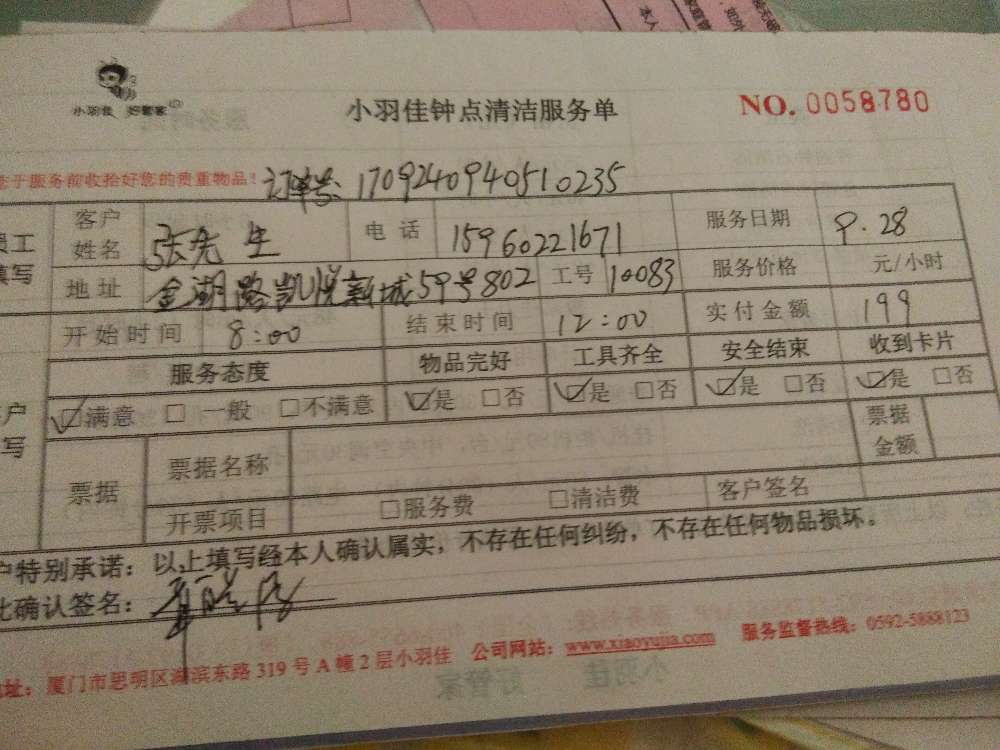 小羽佳 好管家
小羽佳钟点清洁服务单
NO. 0058780
于服务前收拾好您的贵重物品！ 订单号：1709240940510235
员工填写 客户姓名 张先生 电话 15960221671 服务日期 9.28
地址 金湖路凯悦新城59号802 工号 10083 服务价格 元/小时
开始时间 8:00 结束时间 12:00 实付金额 199
服务态度 物品完好 工具齐全 安全结束 收到卡片
☑满意 □一般 □不满意 ☑是 □否 ☑是 □否 ☑是 □否 ☑是 □否
户写 票据 票据名称 票据金额
开票项目 □服务费 □清洁费 客户签名
户特别承诺：以上填写经本人确认属实，不存在任何纠纷，不存在任何物品损坏。
此确认签名：
址：厦门市思明区湖滨东路319号A幢2层小羽佳 公司网站：www.xiaoyujia.com 服务监督热线：0592-5888123